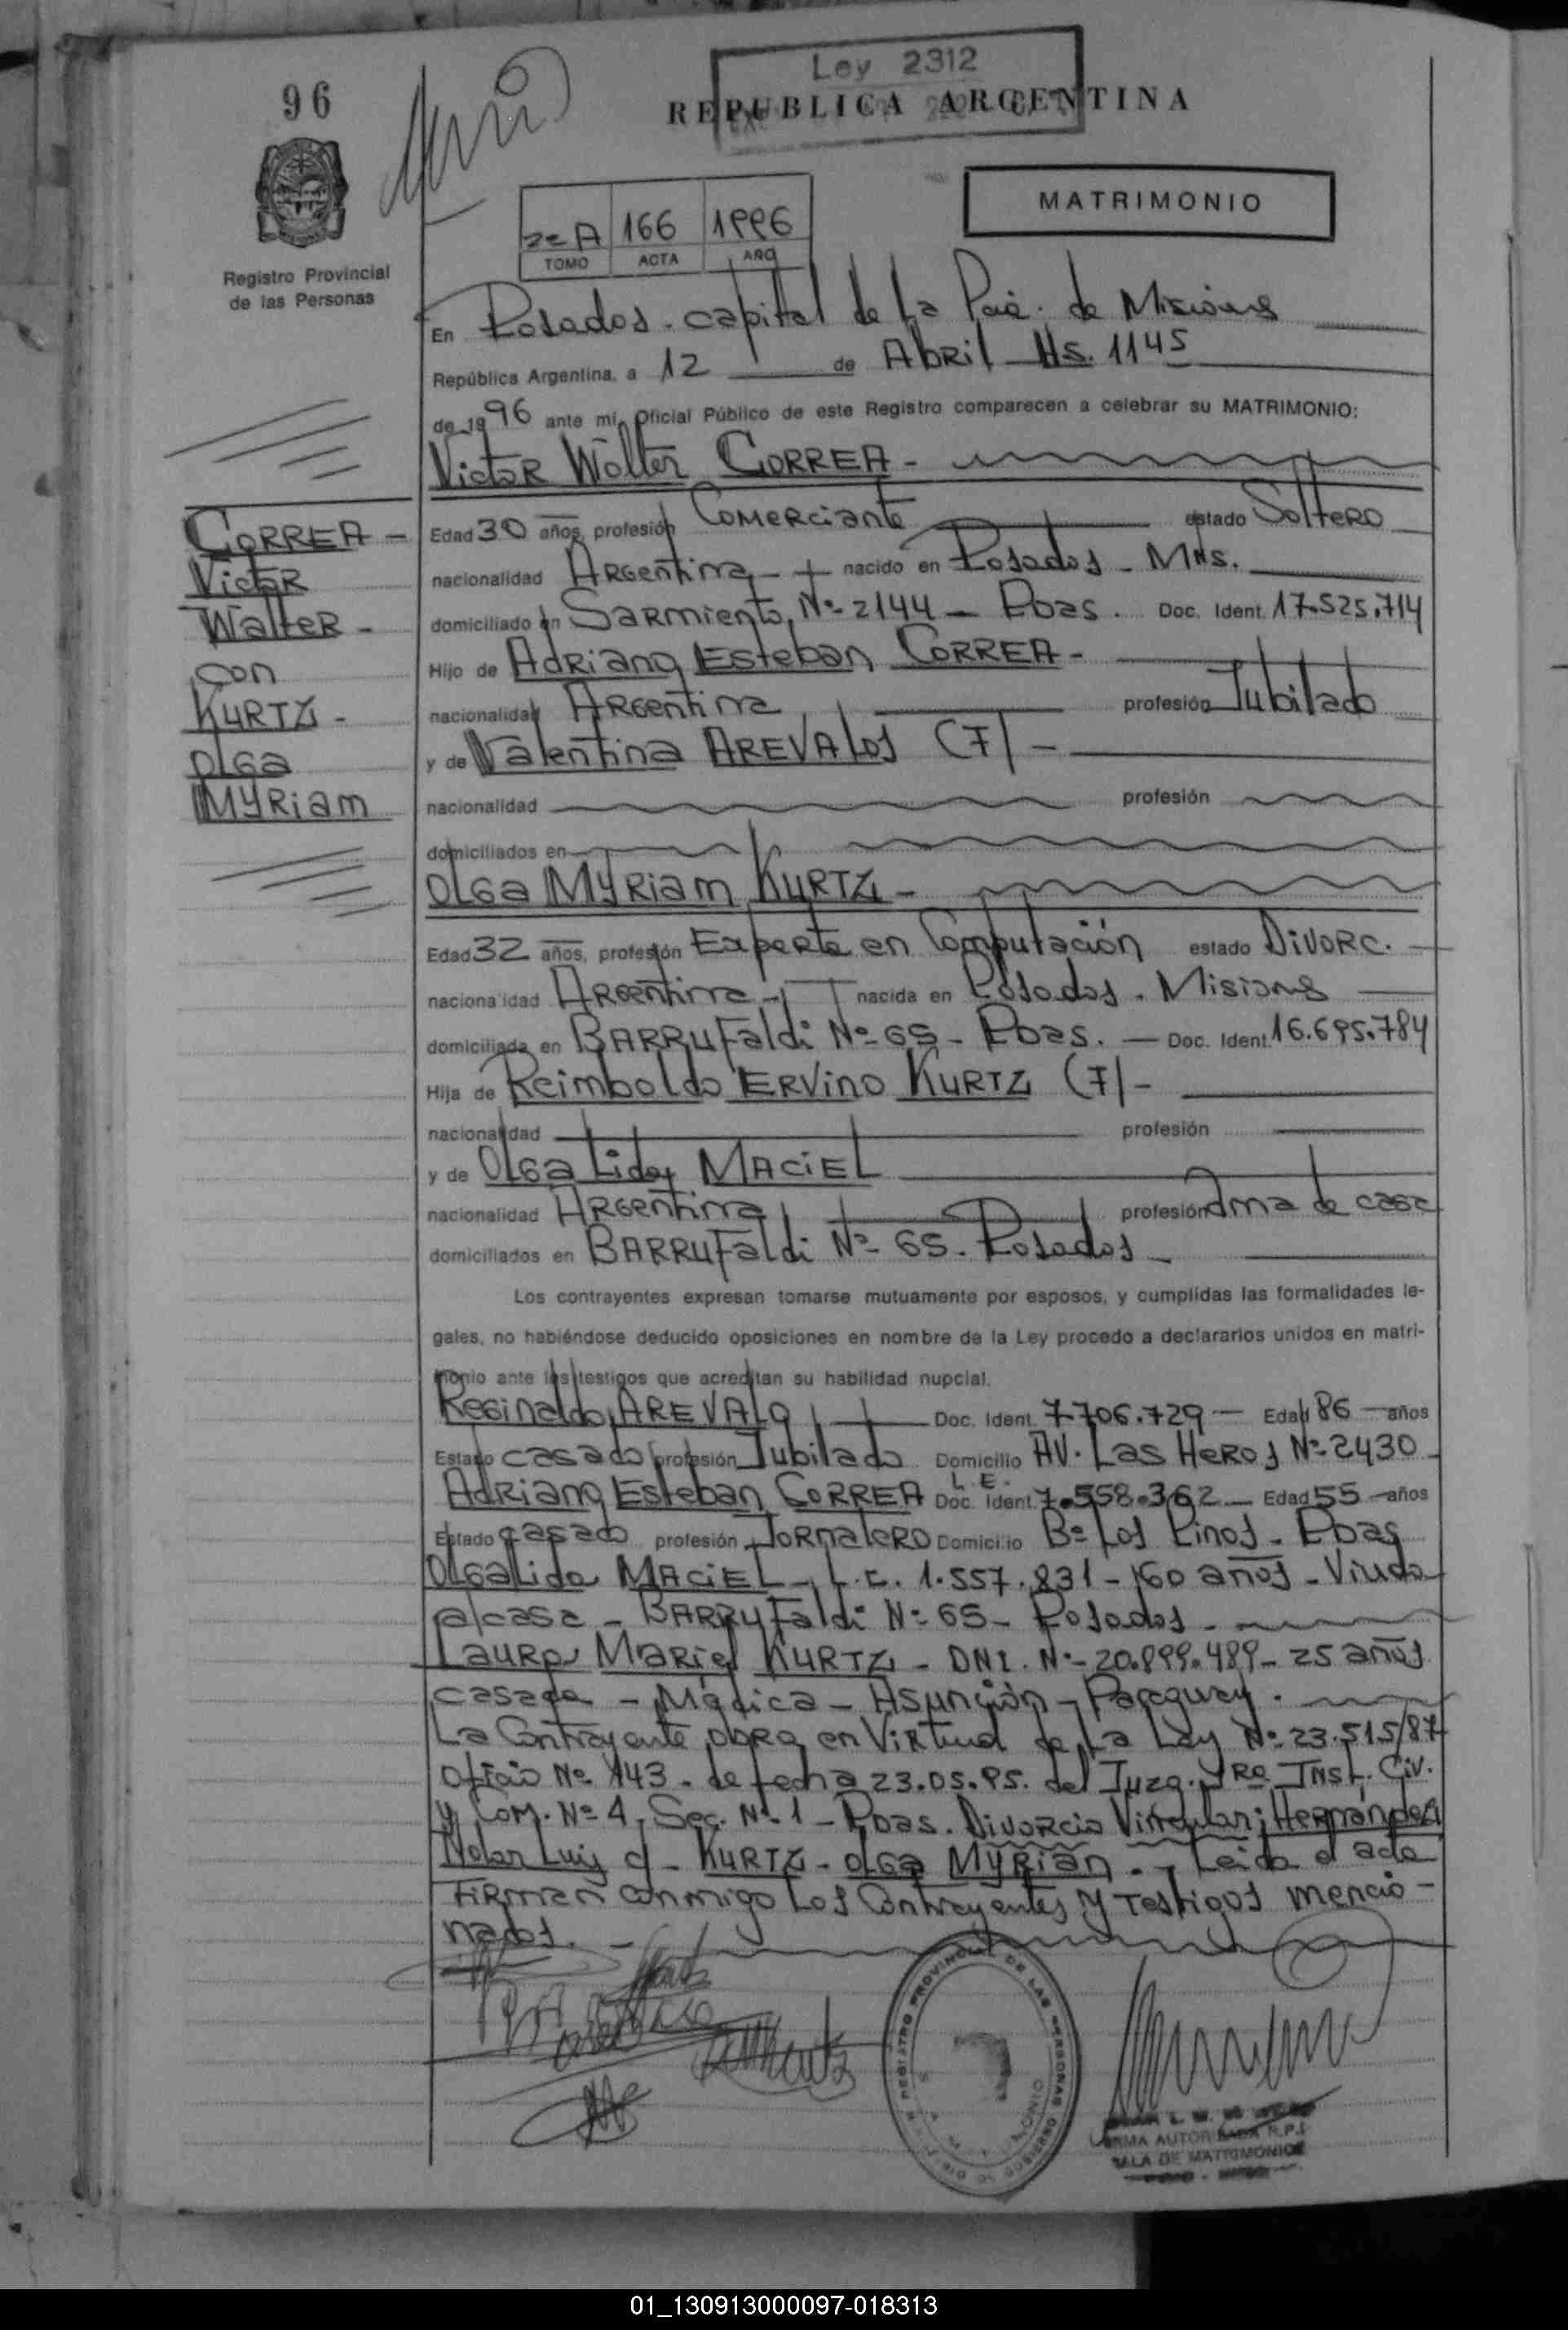 96
Ley 2312
REPUBLICA ARGENTINA
MATRIMONIO
2º A 166 1996
TOMO ACTA AÑO
Registro Provincial
de las Personas
En Posadas. capital de La Pcia. de Misiones
República Argentina, a 12 de Abril Hs. 1145
de 1996 ante mí, Oficial Público de este Registro comparecen a celebrar su MATRIMONIO:
Victor Walter CORREA -
CORREA -
Victor
Walter -
con
KURTZ -
OLGA
MYRiam
Edad 30 años, profesión Comerciante estado Soltero
nacionalidad Argentina - nacido en Posadas - Mns.
domiciliado en Sarmiento Nº 2144 - Pdas. Doc. Ident. 17.525.714
Hijo de Adriano Esteban CORREA -
nacionalidad Argentina profesión Jubilado
y de Valentina AREVALOS (F) -
nacionalidad profesión
domiciliados en
OLGA MYRiam KURTZ -
Edad 32 años, profesión Experta en Computación estado Divorc.
nacionalidad Argentina - nacida en Posadas - Misiones
domiciliada en BARRUFaldi Nº 65 - Pdas. - Doc. Ident. 16.695.784
Hija de Reimboldo ERVino KURTZ (F) -
nacionalidad profesión
y de Olga Lida MACiEL
nacionalidad Argentina profesión Ama de casa
domiciliados en BARRUFaldi Nº 65 - Posadas
Los contrayentes expresan tomarse mutuamente por esposos, y cumplidas las formalidades le-
gales, no habiéndose deducido oposiciones en nombre de la Ley procedo a declararlos unidos en matri-
monio ante los testigos que acreditan su habilidad nupcial.
Reginaldo AREVALO Doc. Ident. 7.706.729 - Edad 86 años
Estado casado profesión Jubilado Domicilio AV. Las Heros Nº 2430
L.E.
Adriano Esteban CORREA Doc. Ident. 7.558.362 - Edad 55 años
Estado casado profesión Jornalero Domicilio Bº Los Pinos - Pdas
Olga Lida MACiEL - L.C. 1.557.831 - 60 años - Viuda
a/casa - BARRUFaldi Nº 65 - Posadas -
Laura Mariel KURTZ - DNI. Nº 20.899.489 - 25 años
casada - Médica - Asunción - Paraguay.
La Contrayente obra en Virtud de La Ley Nº 23.515/87
Oficio Nº 143 - de fecha 23.05.95. del Juzg. 1Ro. Inst. Civ.
y Com. Nº 4, Sec. Nº 1 - Pdas. Divorcio Vincular; Hernández
Luis c/ - KURTZ - OLGA MYRian. - Leida el acta
Firman conmigo Los Contrayentes y Testigos mencio-
nados. -
REGISTRO PROVINCIAL DE LAS PERSONAS
FIRMA AUTORIZADA R.P.P.
SALA DE MATRIMONIOS
01_130913000097-018313